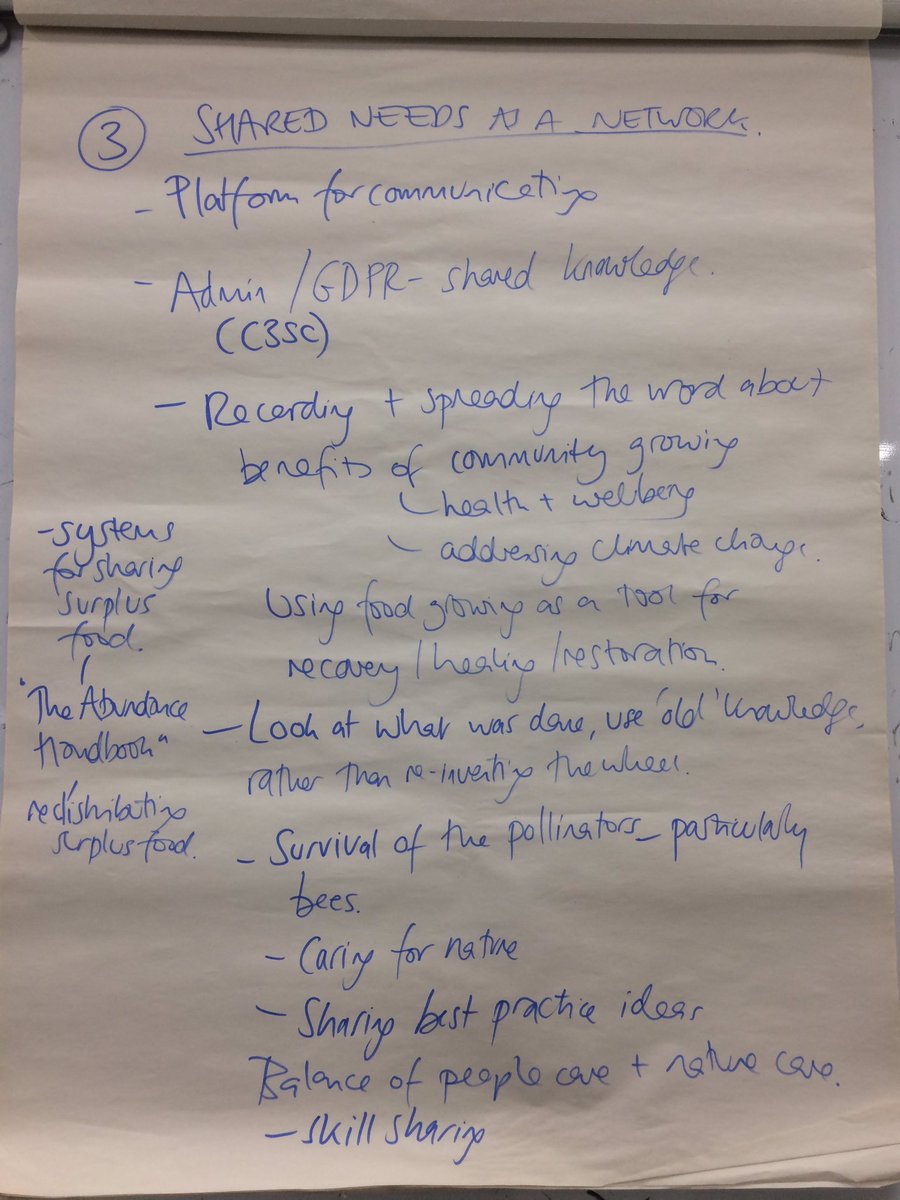 3 SHARED NEEDS AS A NETWORK.
- Platform for communicating
- Admin / GDPR - shared knowledge.
(C3SC)
- Recording + spreading the word about
benefits of community growing
health + wellbeing
- addressing climate change.
Using food growing as a tool for
recovery / healing / restoration.
- Look at what was done, use 'old' knowledge,
rather than re-inventing the wheel.
- Survival of the pollinators - particularly
bees.
- Caring for nature
- Sharing best practice ideas
Balance of people care + nature care.
- Skill sharing
- systems
for sharing
surplus
food.
"The Abundance
Handbook"
redistributing
surplus food.